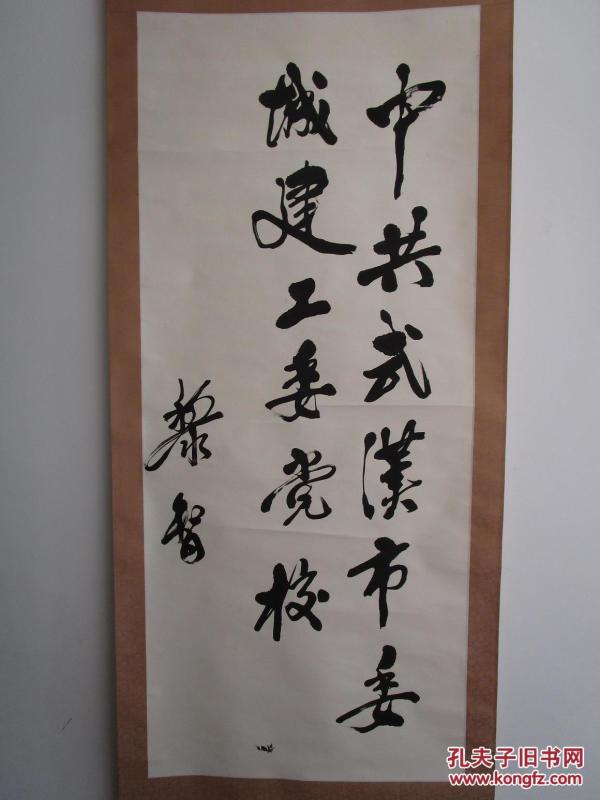 中共武漢市委
城建工委党校
黎智
孔夫子旧书网
www.kongfz.com